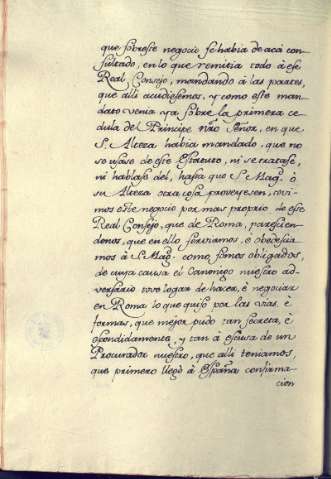 que sobreste negocio se habia de acá con
sultado, en lo que remitia todo á ese
Real Consejo, mandando á las partes,
que alli acudiesemos, y como este man
dato venia ya sobre la primera ce
dula del Principe não Señor, en que
S. Alteza habia mandado, que no
se usase de este Estatuto, ni se tratase,
ni hablase del, hasta que S. Mag. ó
su Alteza otra cosa proveyesen, tuvi
mos este negocio por mas proprio de ese
Real Consejo, que de Roma, paresien
donos, que en ello serviamos, e obedesia
mos á S. Mag. como somos obligados,
de cuya causa el Canonigo nuestro ad
versario tuvo lugar de hacer, é negociar
en Roma lo que quiso por las vias, é
formas, que mejor pudo tan secreta, é
escondidamente, y tan á escusa de un
Procurador nuestro, que alli teniamos,
que primero llegó á España confirma
cion